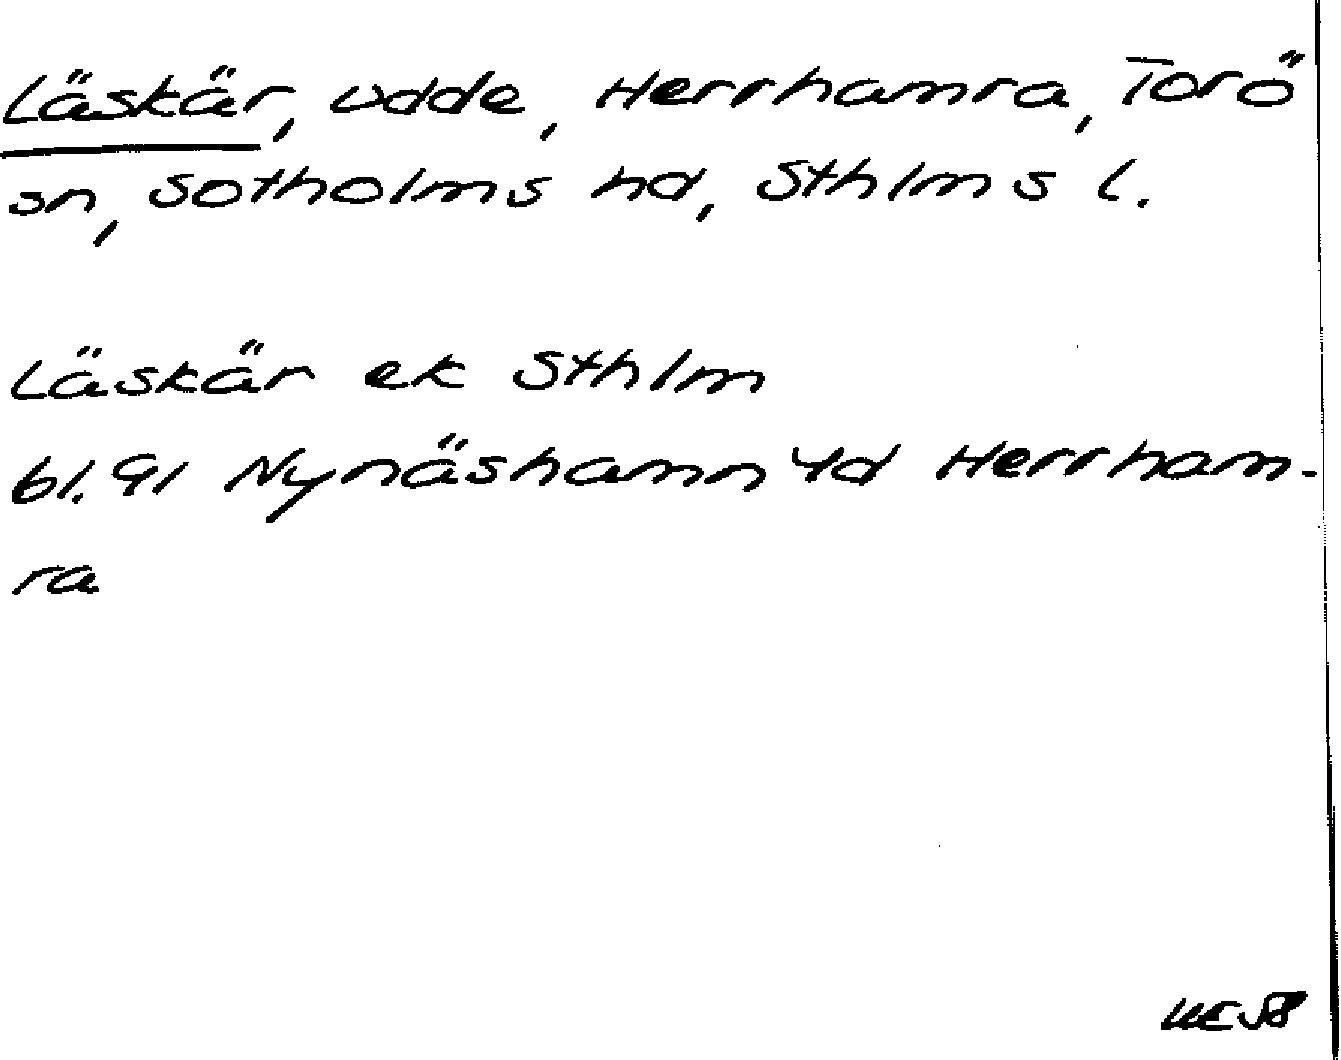 Läskär, udde, Herrhamra, Torö
sn, Sotholms hd, Sthlms l.
Läskär ek Sthlm
bl. 91 Nynäshamn 4d Herrham-
ra